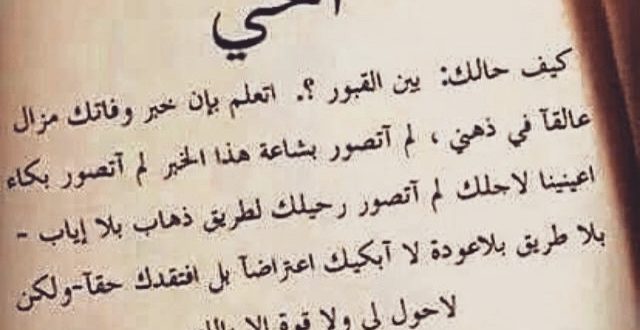 كيف حالك: بين القبور ؟. اتعلم بإن خبر وفاتك مزال
عالقآ في ذهني ، لم آتصور بشاعة هذا الخبر لم آتصور بكاء
اعيننا لاجلك لم آتصور رحيلك لطريق ذهاب بلا إياب -
بلا طريق بلاعودة لا آبكيك اعتراضآ بل افتقدك حقآ-ولكن
لاحول لي ولا قوة الا بالله